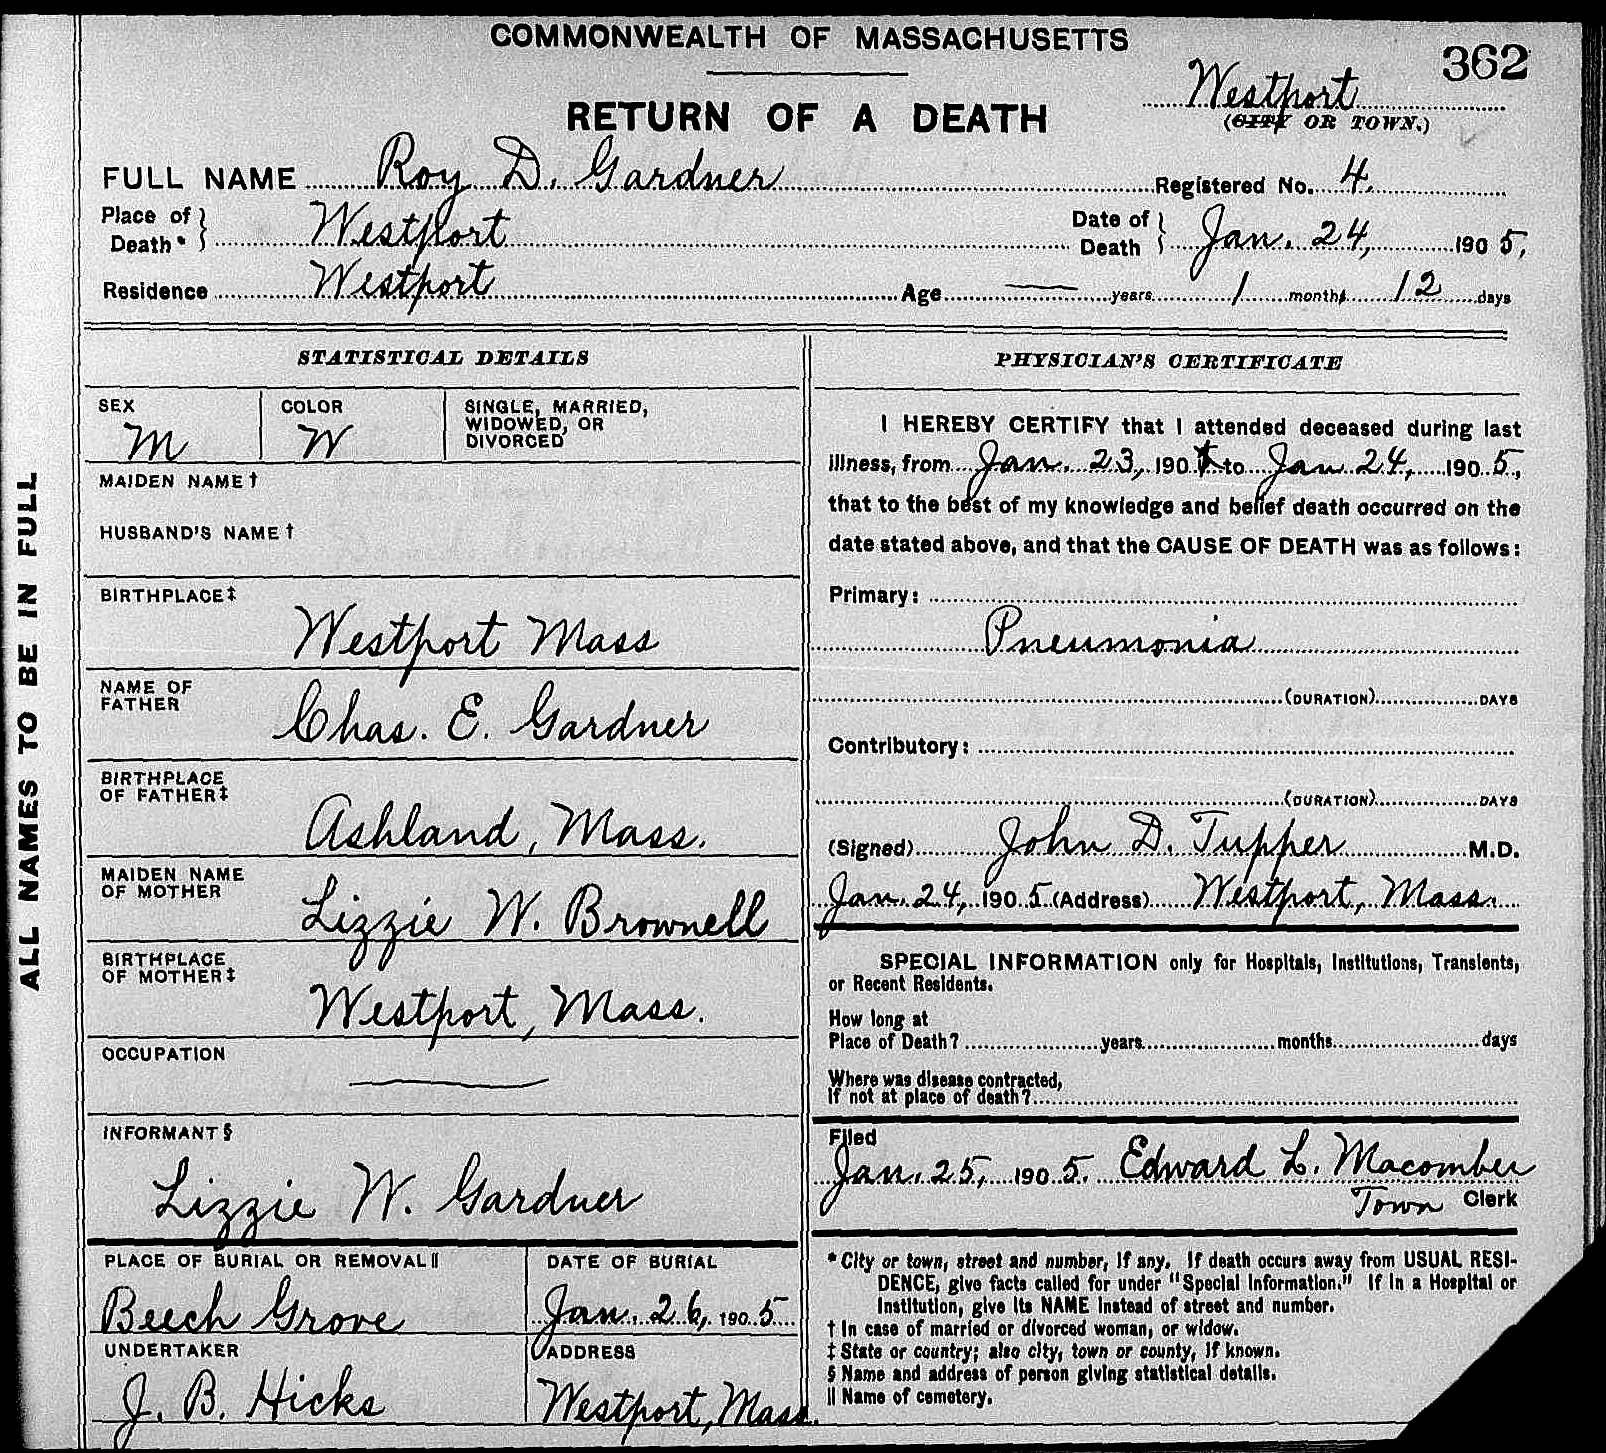 COMMONWEALTH OF MASSACHUSETTS
362
Westport
(CITY OR TOWN.)
RETURN OF A DEATH
FULL NAME Roy D. Gardner Registered No. 4.
Place of Death* } Westport Date of Death } Jan. 24, 1905,
Residence Westport Age — years 1 months 12 days
ALL NAMES TO BE IN FULL
STATISTICAL DETAILS
SEX
M
COLOR
W
SINGLE, MARRIED,
WIDOWED, OR
DIVORCED
MAIDEN NAME †
HUSBAND'S NAME †
BIRTHPLACE ‡
Westport Mass
NAME OF
FATHER
Chas. E. Gardner
BIRTHPLACE
OF FATHER ‡
Ashland, Mass.
MAIDEN NAME
OF MOTHER
Lizzie W. Brownell
BIRTHPLACE
OF MOTHER ‡
Westport, Mass.
OCCUPATION
—
INFORMANT §
Lizzie W. Gardner
PLACE OF BURIAL OR REMOVAL ||
Beech Grove
DATE OF BURIAL
Jan. 26, 1905
UNDERTAKER
J. B. Hicks
ADDRESS
Westport, Mass.
PHYSICIAN'S CERTIFICATE
I HEREBY CERTIFY that I attended deceased during last
illness, from Jan. 23, 1905 to Jan 24, 1905,
that to the best of my knowledge and belief death occurred on the
date stated above, and that the CAUSE OF DEATH was as follows:
Primary:
Pneumonia
(DURATION) DAYS
Contributory:
(DURATION) DAYS
(Signed) John D. Tupper M.D.
Jan. 24, 1905 (Address) Westport, Mass.
SPECIAL INFORMATION only for Hospitals, Institutions, Transients,
or Recent Residents.
How long at
Place of Death? years months days
Where was disease contracted,
If not at place of death?
Filed
Jan. 25, 1905. Edward L. Macomber
Town Clerk
* City or town, street and number, if any. If death occurs away from USUAL RESI-
DENCE, give facts called for under "Special Information." If in a Hospital or
Institution, give its NAME instead of street and number.
† In case of married or divorced woman, or widow.
‡ State or country; also city, town or county, if known.
§ Name and address of person giving statistical details.
|| Name of cemetery.